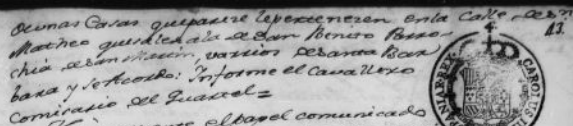 de unas Casas que parece le pertenecen en la Calle de Sn
Matheo que sale a la de San Benito Parro-
chia de San Martin, varrios de Santa Bar
bara y se Acordo: Informe el Cavallero
Comisario del Quartel=
el papel comunicado
13.
CAROLUS II
REX